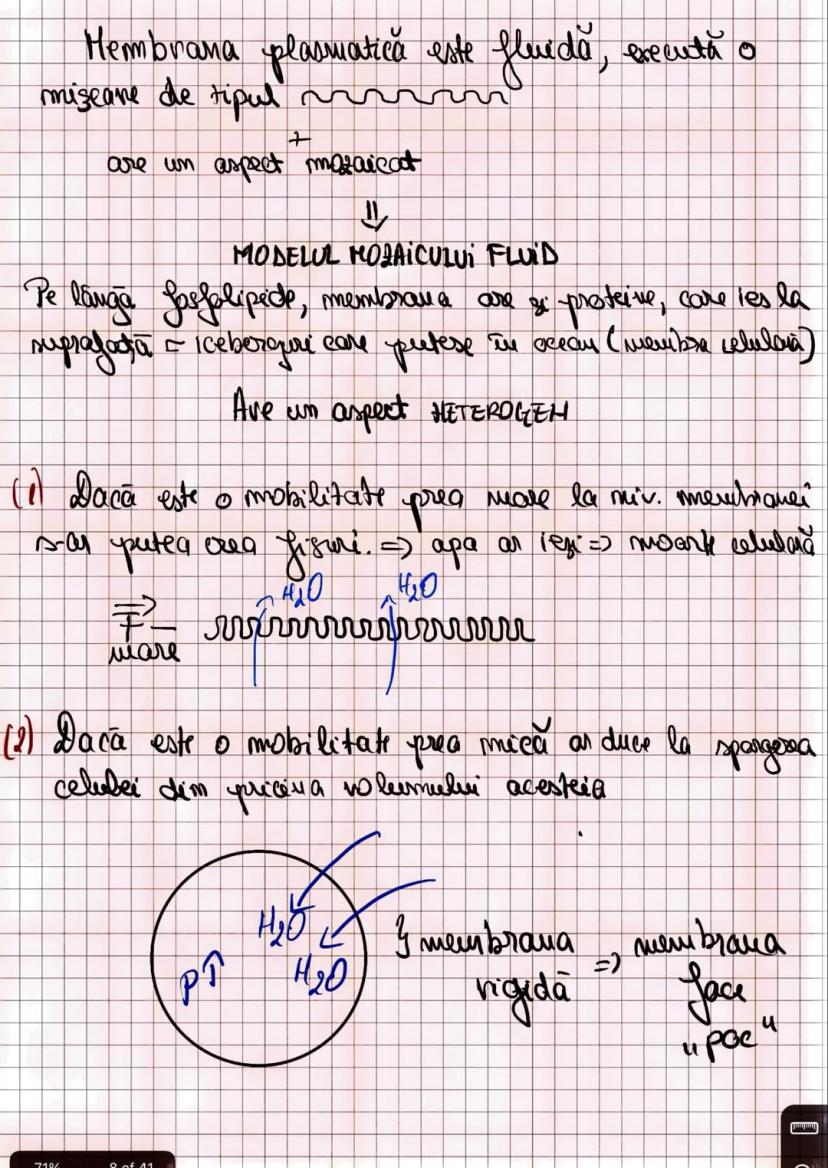 Membrana plasmatică este fluidă, execută o
mișcare de tipul
+
are un aspect mozaicat
⇓
MODELUL MOZAICULUI FLUID
Pe lângă fosfolipide, membrana are și proteine, care ies la
suprafață = iceberguri care plutesc în ocean (membra celulară)
Are un aspect HETEROGEN
(1) Dacă este o mobilitate prea mare la niv. membranei
s-ar putea crea fisuri. => apa ar ieși => moarte celulară
H₂O H₂O
mare
(2) Dacă este o mobilitate prea mică ar duce la spargerea
celulei din pricina volumului acesteia
H₂O
p↑ H₂O
} membrana rigidă => membrana face „poc"
71% 8 of 41